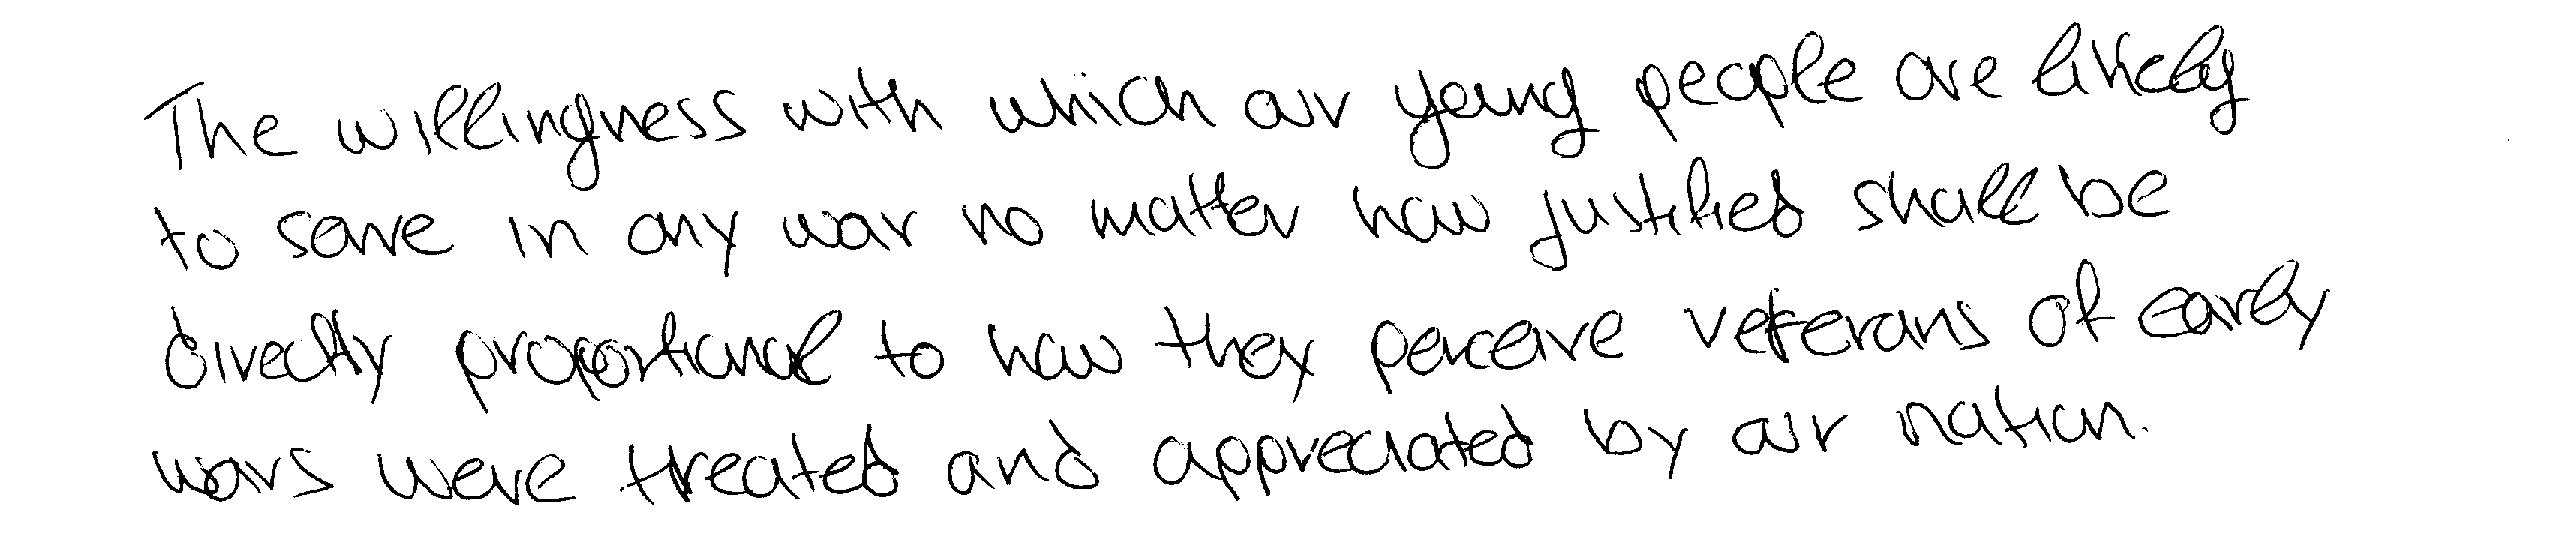 The willingness with which our young people are likely
to serve in any war no matter how justified shall be
directly proportional to how they perceive veterans of early
wars were treated and appreciated by our nation.